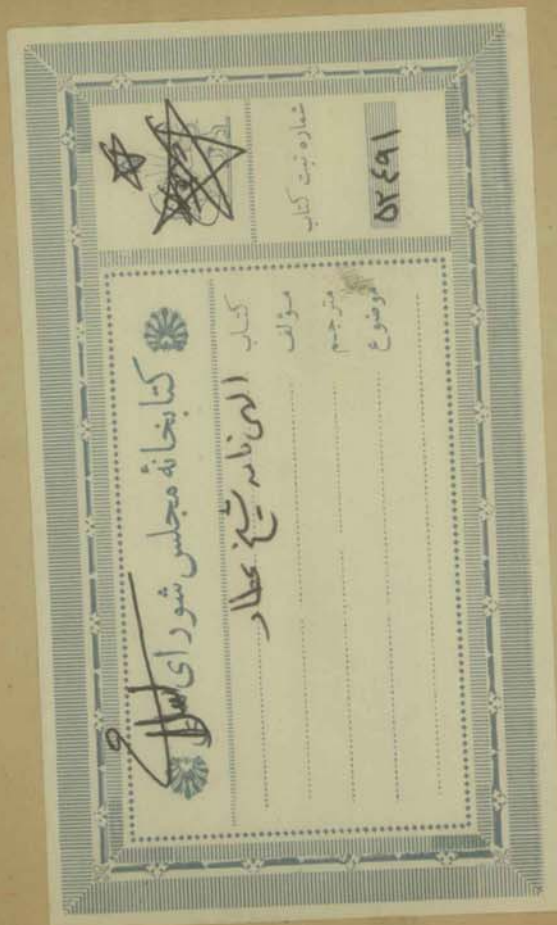 کتابخانهٔ مجلس شورای اسلامی
کتاب الهی نامه شیخ عطار
مؤلف
مترجم
موضوع
شماره ثبت کتاب
۵۲٤۹۱